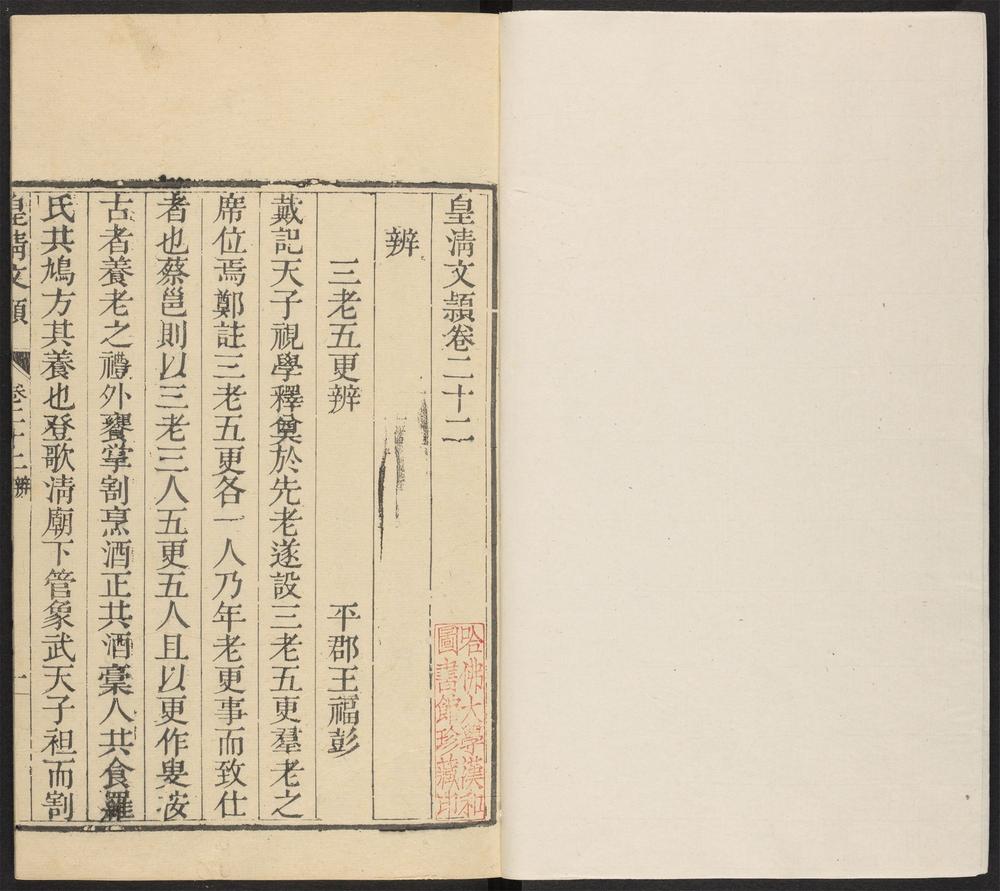 皇淸文穎卷二十二
哈佛大學漢和
圖書館珍藏印
辨
三老五更辨　平郡王福彭
戴記天子視學釋奠於先老遂設三老五更羣老之
席位焉鄭註三老五更各一人乃年老更事而致仕
者也蔡邕則以三老三人五更五人且以更作叟按
古者養老之禮外饔掌割烹酒正共酒槀人共食羅
氏共鳩方其養也登歌淸廟下管象武天子袒而割
皇淸文穎　卷二十二辨　一